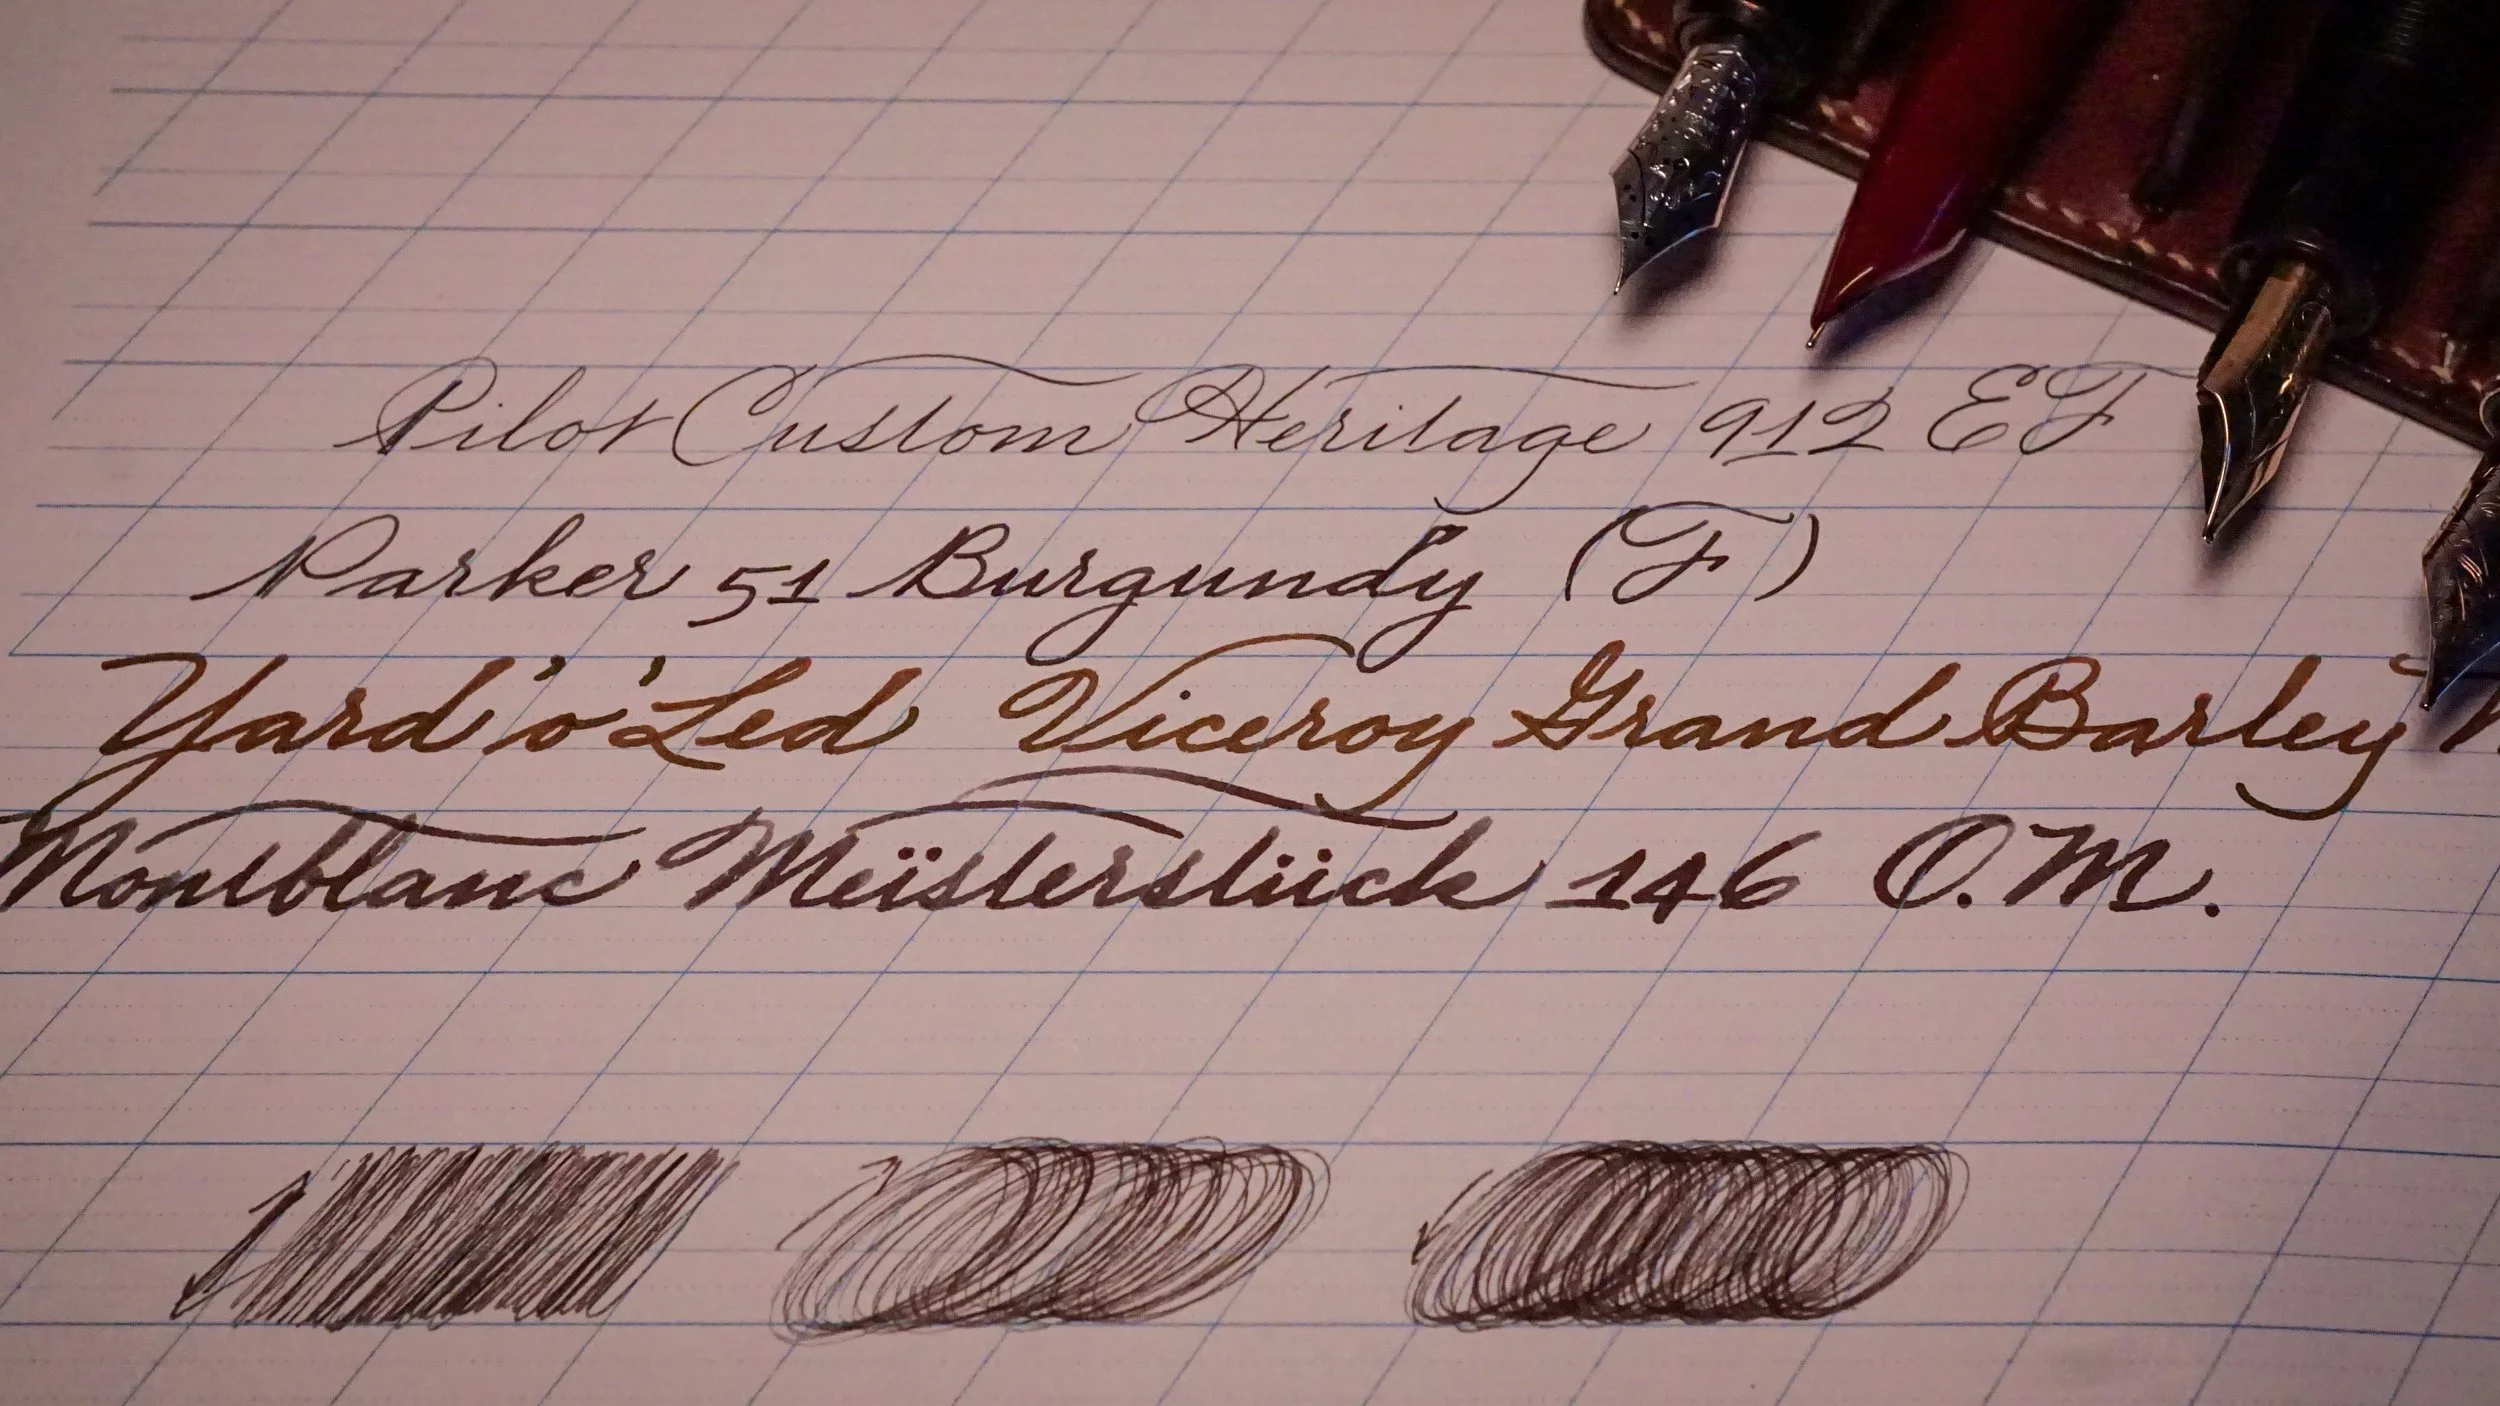 Pilot Custom Heritage 912 EF
Parker 51 Burgundy (F)
Yard'o'Led Viceroy Grand Barley
Montblanc Meisterstück 146 O.M.